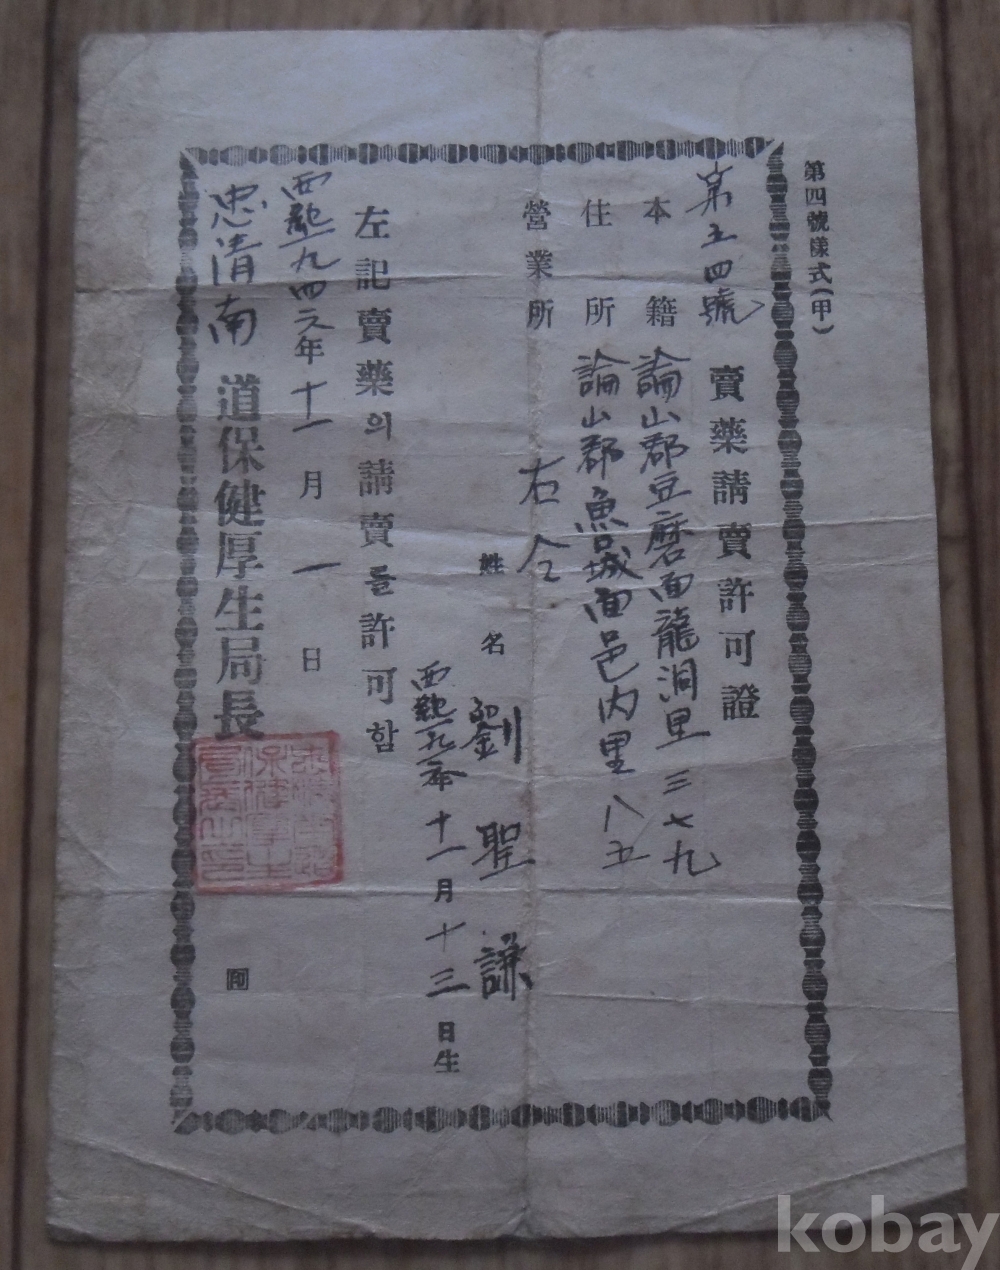 第四號樣式(甲)
第五四號
賣藥請賣許可證
本籍 論山郡豆磨面龍洞里三七九
住所 論山郡魯城面邑內里八五
營業所 右仝
姓名 劉聖謙
西紀一九 年十一月十三日生
左記賣藥의請賣를許可함
西紀一九四六年十一月一日
忠淸南道保健厚生局長
忠淸南道保健厚生局長之印
kobay